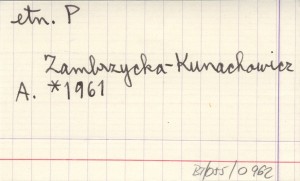 etn. P
Zambrzycka-Kunachowicz
A. *1961
BZ/055/0962